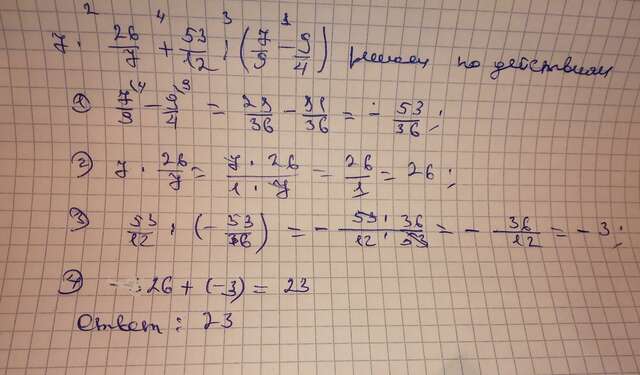 7 · 26/7 + 53/12 : (7/9 − 9/4) решаем по действиям
① 7/9 − 9/4 = 28/36 − 81/36 = − 53/36;
② 7 · 26/7 = 7 · 26/1 · 7 = 26/1 = 26;
③ 53/12 : (− 53/36) = − 53 · 36/12 · 53 = − 36/12 = − 3;
④ 26 + (−3) = 23
Ответ : 23